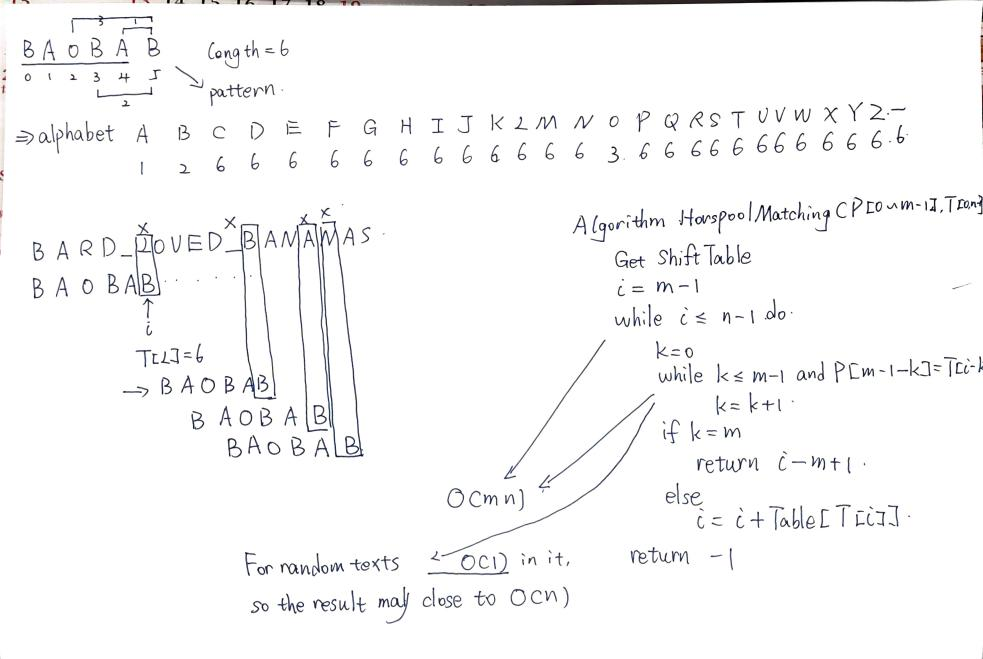 3 1
B A O B A B
0 1 2 3 4 5
2
Length = 6
pattern.
⇒ alphabet A B C D E F G H I J K L M N O P Q R S T U V W X Y Z. –
1 2 6 6 6 6 6 6 6 6 6 6 6 6 3. 6 6 6 6 6 6 6 6 6 6 6. 6
x x x x
B A R D _ L O V E D _ B A N A N A S
B A O B A B . . . . . .
↑
i
T[L] = 6
→ B A O B A B
B A O B A B
B A O B A B
Algorithm HorspoolMatching(P[0~m-1], T[0~n]
Get Shift Table
i = m-1
while i ≤ n-1 do.
k=0
while k ≤ m-1 and P[m-1-k] = T[i-k
k = k+1.
if k = m
return i-m+1.
else
i = i + Table[T[i]].
return -1
O(mn)
For random texts O(1) in it,
so the result may close to O(n)